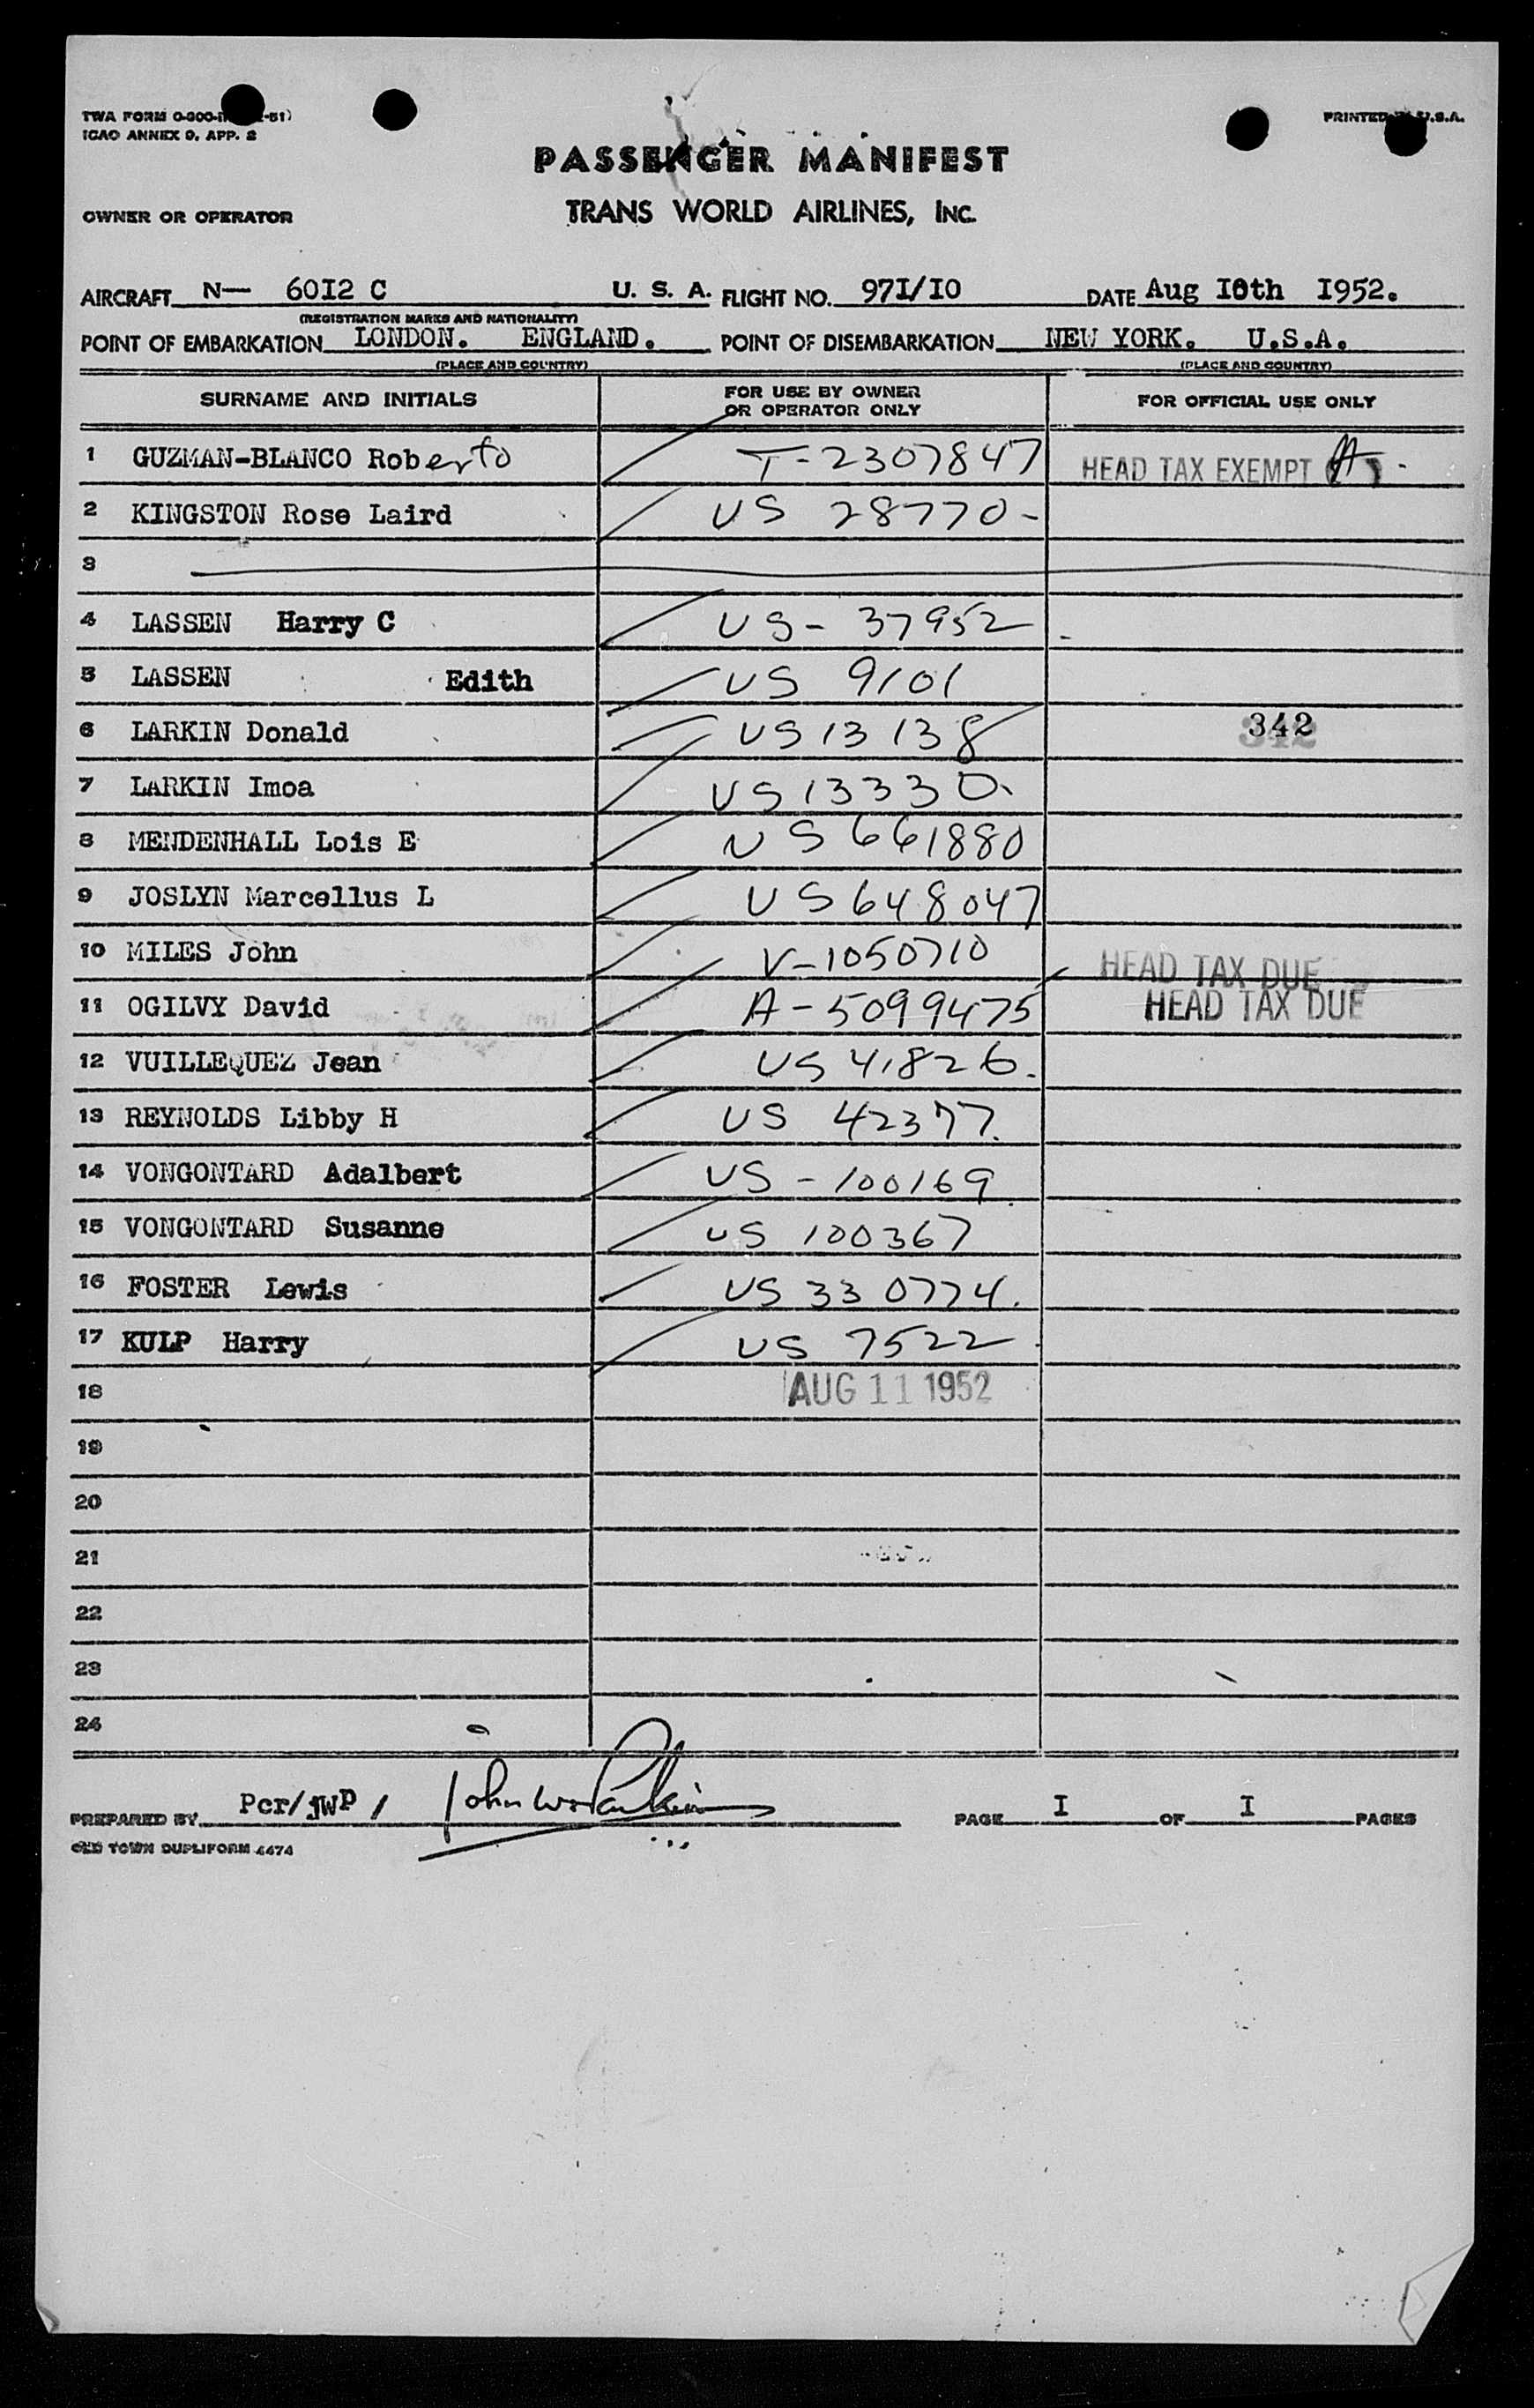 TWA FORM 0-300- -51)
ICAO ANNEX 9, APP. 2
PRINTED U.S.A.
PASSENGER MANIFEST
OWNER OR OPERATOR TRANS WORLD AIRLINES, INC.
AIRCRAFT N— 60I2 C U. S. A. FLIGHT NO. 97I/I0 DATE Aug I0th I952.
(REGISTRATION MARKS AND NATIONALITY)
POINT OF EMBARKATION LONDON. ENGLAND. POINT OF DISEMBARKATION NEW YORK. U.S.A.
(PLACE AND COUNTRY) (PLACE AND COUNTRY)
SURNAME AND INITIALS FOR USE BY OWNER OR OPERATOR ONLY FOR OFFICIAL USE ONLY
1 GUZMAN-BLANCO Roberto T-2307847 HEAD TAX EXEMPT
2 KINGSTON Rose Laird US 28770-
3
4 LASSEN Harry C US- 37952
5 LASSEN Edith US 9101
6 LARKIN Donald US 13138 342
7 LARKIN Imoa US 13330.
8 MENDENHALL Lois E US 661880
9 JOSLYN Marcellus L US 648047
10 MILES John V-1050710 HEAD TAX DUE
11 OGILVY David A-5099475 HEAD TAX DUE
12 VUILLEQUEZ Jean US 41826.
13 REYNOLDS Libby H US 42377.
14 VONGONTARD Adalbert US -100169
15 VONGONTARD Susanne US 100367
16 FOSTER Lewis US 330774.
17 KULP Harry US 7522
18 AUG 11 1952
19
20
21
22
23
24
PREPARED BY Pcr/jWP / PAGE I OF I PAGES
OLD TOWN DUPLIFORM 4474